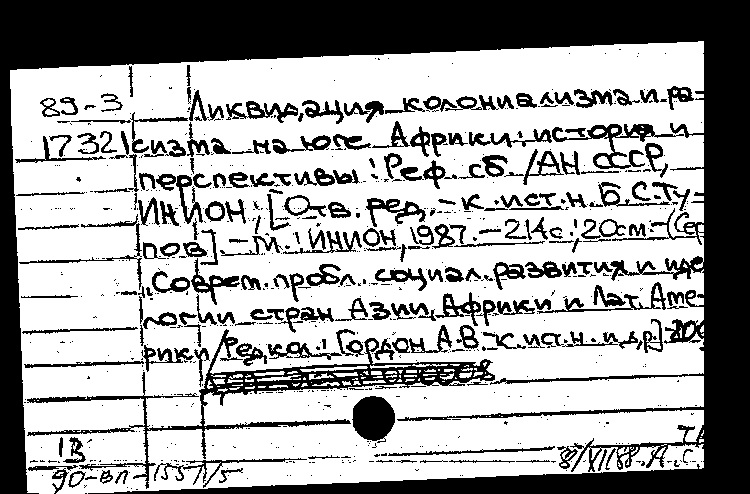 89-3 Ликвидация колониализма и ра-
17321 сизма на юге Африки: история и
перспективы: Реф. сб. /АН СССР,
ИНИОН; [Отв. ред. - к. ист. н. Б.С. Ту-
пов]. - М.: ИНИОН, 1987. - 214с.; 20см - (Сер
"Соврем. пробл. социал. развития и идео
логии стран Азии, Африки и Лат. Аме-
рики / Редкол.: Гордон А.В. - к. ист. н. и др.]
1В
90-вп-1551/5
8/XII88 А.С.